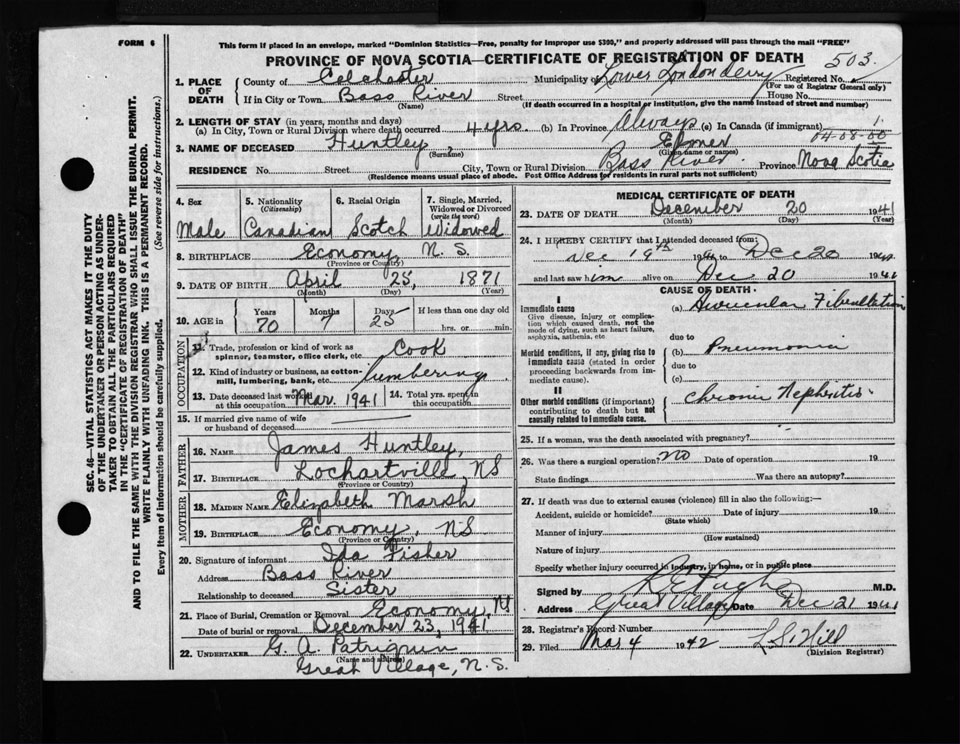 FORM 6
This form if placed in an envelope, marked "Dominion Statistics—Free, penalty for improper use $300," and properly addressed will pass through the mail "FREE"
PROVINCE OF NOVA SCOTIA—CERTIFICATE OF REGISTRATION OF DEATH 503
1. PLACE OF DEATH
County of Colchester Municipality of Lower Londonderry Registered No.
(For use of Registrar General only)
If in City or Town Bass River Street House No.
(Name) (If death occurred in a hospital or institution, give the name instead of street and number)
2. LENGTH OF STAY (in years, months and days)
(a) In City, Town or Rural Division where death occurred 4 yrs. (b) In Province Always (c) In Canada (if immigrant)
1
04-08-00
3. NAME OF DECEASED Huntley, Elmer
(Surname) (Given name or names)
RESIDENCE No. Street City, Town or Rural Division Bass River Province Nova Scotia
(Residence means usual place of abode. Post Office Address for residents in rural parts not sufficient)
4. Sex
Male
5. Nationality (Citizenship)
Canadian
6. Racial Origin
Scotch
7. Single, Married, Widowed or Divorced (write the word)
Widowed
8. BIRTHPLACE Economy, N.S.
(Province or Country)
9. DATE OF BIRTH April 25, 1871
(Month) (Day) (Year)
10. AGE in Years Months Days If less than one day old
70 7 25 hrs. or min.
OCCUPATION
11. Trade, profession or kind of work as spinner, teamster, office clerk, etc. Cook
12. Kind of industry or business, as cotton-mill, lumbering, bank, etc. lumbering
13. Date deceased last worked at this occupation Mar. 1941 14. Total yrs. spent in this occupation
15. If married give name of wife or husband of deceased
FATHER
16. NAME James Huntley,
17. BIRTHPLACE Lochartville, NS
(Province or Country)
MOTHER
18. MAIDEN NAME Elizabeth Marsh
19. BIRTHPLACE Economy, NS
(Province or Country)
20. Signature of informant Ida Fisher
Address Bass River
Relationship to deceased Sister
21. Place of Burial, Cremation or Removal Economy, N
Date of burial or removal December 23, 1941
22. UNDERTAKER G. A. Patriquin
(Name and address)
Great Village, N.S.
MEDICAL CERTIFICATE OF DEATH
23. DATE OF DEATH December 20 1941
(Month) (Day) (Year)
24. I HEREBY CERTIFY that I attended deceased from:
Dec 19th 1941 to Dec 20 1941
and last saw him alive on Dec 20 1941
CAUSE OF DEATH
I
Immediate cause
Give disease, injury or complication which caused death, not the mode of dying, such as heart failure, asphyxia, asthenia, etc
(a) Auricular Fibrillation
due to
Morbid conditions, if any, giving rise to immediate cause (stated in order proceeding backwards from immediate cause).
(b) Pneumonia
due to
(c)
II
Other morbid conditions (if important) contributing to death but not causally related to immediate cause.
Chronic Nephritis
25. If a woman, was the death associated with pregnancy?
26. Was there a surgical operation? NO Date of operation 19
State findings Was there an autopsy?
27. If death was due to external causes (violence) fill in also the following:—
Accident, suicide or homicide? Date of injury 19
(State which)
Manner of injury
(How sustained)
Nature of injury
Specify whether injury occurred in industry, in home, or in public place
Signed by M.D.
Address Great Village Date Dec 21 1941
28. Registrar's Record Number
29. Filed Mar 4 1942 L S Hill
(Division Registrar)
SEC. 46—VITAL STATISTICS ACT MAKES IT THE DUTY
OF THE UNDERTAKER OR PERSON ACTING AS UNDER-
TAKER TO OBTAIN ALL THE PARTICULARS REQUIRED
IN THE "CERTIFICATE OF REGISTRATION OF DEATH"
AND TO FILE THE SAME WITH THE DIVISION REGISTRAR WHO SHALL ISSUE THE BURIAL PERMIT.
WRITE PLAINLY WITH UNFADING INK. THIS IS A PERMANENT RECORD.
Every item of information should be carefully supplied. (See reverse side for instructions.)